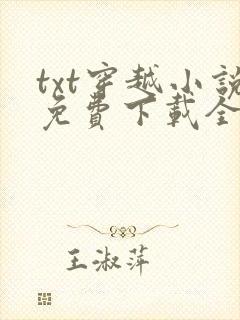 txt穿越小說
免費下載全
王淑萍